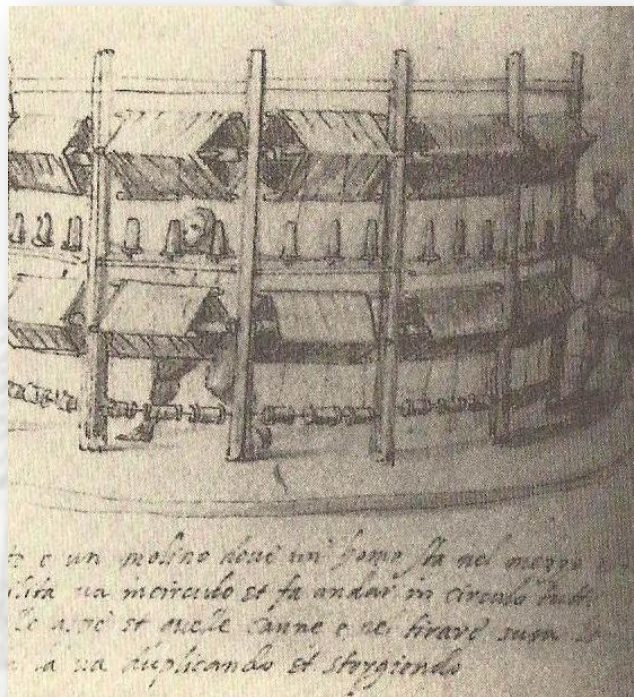 e un molino dove un homo sta nel mezzo
va incirculo et fa andar in circulo
le aspe et quelle canne e nel tirare
la va duplicando et storgiendo